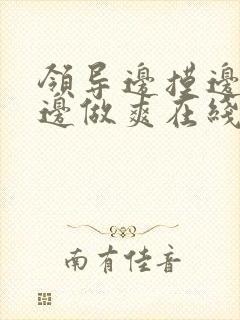 領导邊摸邊
邊做爽在綫
南有佳音